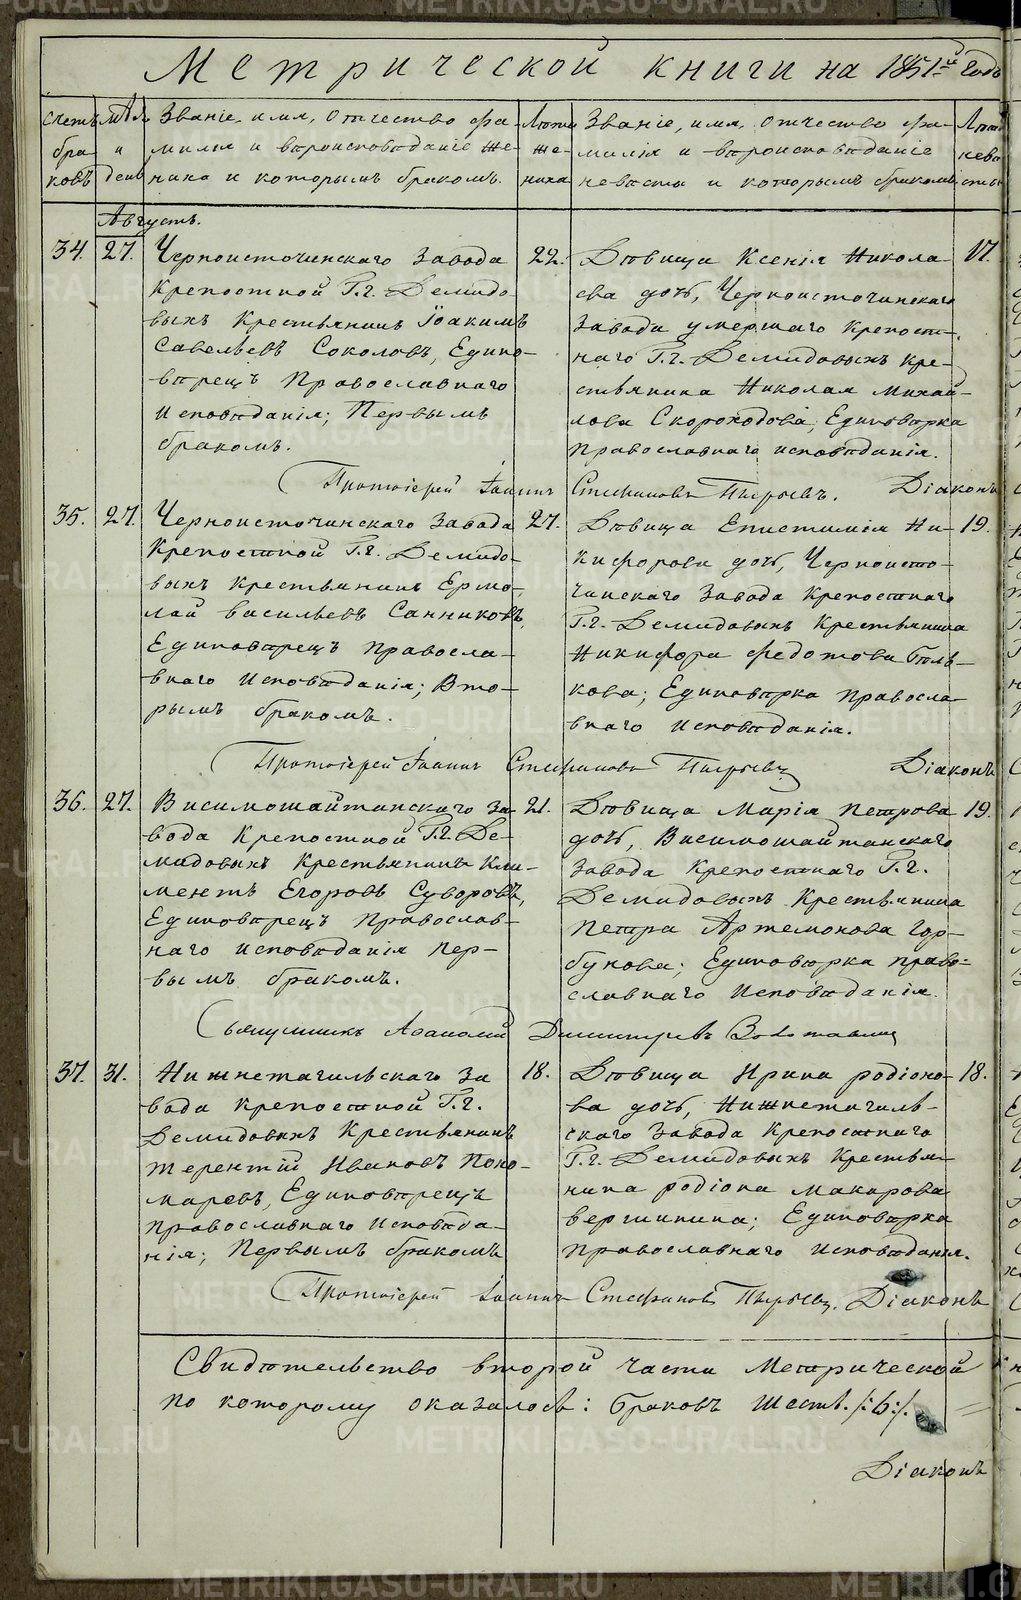 METRIKI.GASO-URAL.RU
Метрической книги на 1851й годъ
Счетъ браковъ
мѣс. и день
Званіе, имя, отчество, фамилія и вѣроисповѣданіе жениха и которымъ бракомъ.
Лѣта жениха
Званіе, имя, отчество фамилія и вѣроисповѣданіе невѣсты и которымъ бракомъ
Лѣта невѣсты
Августъ.
34. 27.
Черноисточинскаго завода
крепостной Г.г. Демидо-
выхъ Крестьянинъ Іоакимъ
Савельевъ Соколовъ, Едино-
вѣрецъ Православнаго
Исповѣданія; Первымъ
бракомъ.
22.
Дѣвица Ксенія Никола-
ева дочь, Черноисточинскаго
завода умершаго крепост-
наго Г.г. Демидовыхъ кре-
стьянина Николая Михай-
лова Скороходова, Единовѣрка
православнаго исповѣданія.
17.
Протоіерей Іоаннъ Стефановъ Пырьевъ. Діаконъ
35. 27.
Черноисточинскаго завода
Крепостной Г.г. Демидо-
выхъ крестьянинъ Ермо-
лай васильевъ Санниковъ,
Единовѣрецъ правосла-
внаго исповѣданія; Вто-
рымъ бракомъ.
27.
Дѣвица Епистимія Ни-
кифорова дочь, Черноисто-
чинскаго завода крепостнаго
Г.г. Демидовыхъ Крестьянина
Никифора Федотова Бѣль-
кова; Единовѣрка правосла-
внаго исповѣданія.
19.
Протоіерей Іоаннъ Стефановъ Пырьевъ Діаконъ
36. 27.
Висимошайтанскаго за-
вода крепостной Г.г. Де-
мидовыхъ крестьянинъ Кли-
ментъ Егоровъ Суворовъ,
Единовѣрецъ православ-
наго исповѣданія пер-
вымъ бракомъ.
21.
Дѣвица Марія петрова
дочь, Висимошайтанскаго
завода Крепостнаго Г.г.
Демидовыхъ Крестьянина
Петра Артемонова Гор-
бунова; Единовѣрка право-
славнаго исповѣданія.
19.
Священникъ Аѳанасій Димитріевъ
37. 31.
Нижнетагильскаго за
вода крепостной Г.г.
Демидовыхъ Крестьянинъ
терентій Ивановъ Поно-
маревъ, Единовѣрецъ
православнаго исповѣда-
нія; первымъ бракомъ
18.
Дѣвица Ирина родіоно-
ва дочь, Нижнетагиль-
скаго завода крепостнаго
Г.г. Демидовыхъ крестья-
нина родіона макарова
вершинина; Единовѣрка
православнаго исповѣданія.
18.
Протоіерей Іоаннъ Стефановъ Пырьевъ. Діаконъ
Свидѣтельство второй части Метрической
по которому оказалось: браковъ шесть. /:6:/.
Діаконъ